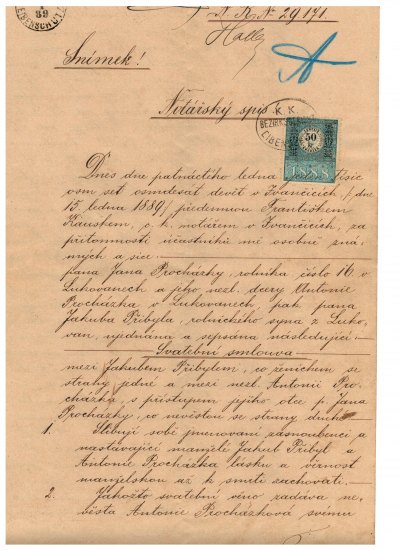 89
EIBENSCHÜTZ
N. R. No 29171.
Halle
Snímek!
Notářský spis
K. K.
BEZIRKS
EIBENS
50
1888
Dnes dne patnáctého ledna Tisíc
osm set osmdesát devět v Ivančicích /: dne
15. ledna 1889 :/ předemnou Františkem
c. k. notářem v Ivančicích, za
přítomnosti účastníků mě osobně zná-
mých a sice:
pana Jana Procházky, rolníka číslo 16 v
Lukovanech a jeho nezl. dcery Antonie
Procházka v Lukovanech, pak pana
Jakuba Přibyla, rolnického syna z Luko-
van, ujednána a sepsána následující:
Svatební smlouva
mezi Jakubem Přibylem, co ženichem se
strany jedné a mezi nezl. Antonií Pro-
cházka, s přístupem jejího otce p. Jana
Procházky, co nevěstou se strany druhé
1. Slibují sobě jmenovaní zasnoubenci a
nastávající manželé Jakub Přibyl a
Antonie Procházka lásku a věrnost
manželskou až k smrti zachovati.
2. Jakožto svatební věno zadává ne-
věsta Antonie Procházková svému